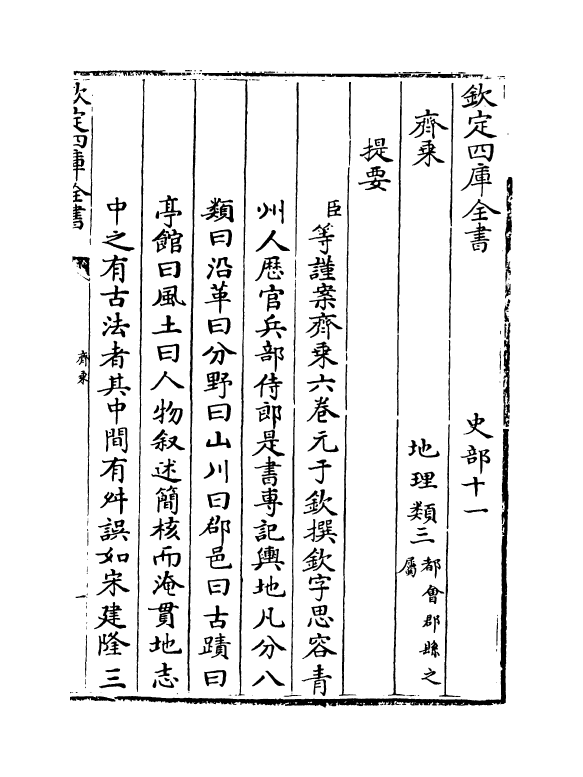 欽定四庫全書　史部十一
齊乘　地理類三都會郡縣之屬
提要
臣等謹案齊乘六卷元于欽撰欽字思容青
州人歴官兵部侍郎是書專記輿地凡分八
類曰沿革曰分野曰山川曰郡邑曰古蹟曰
亭館曰風土曰人物叙述簡核而淹貫地志
中之有古法者其中間有舛誤如宋建隆三
欽定四庫全書　齊乘　一